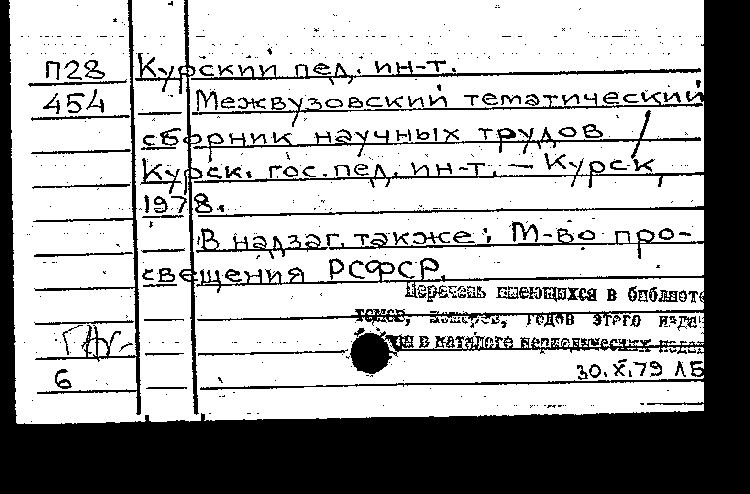 П28 Курский пед. ин-т.
454 Межвузовский тематический
сборник научных трудов /
Курск. гос. пед. ин-т. — Курск,
1978.
В надзаг. также: М-во про-
свещения РСФСР.
Перечень имеющихся в библиоте
томов, номеров, годов этого изда
в каталоге периодических издан
6 30.X.79 ЛБ